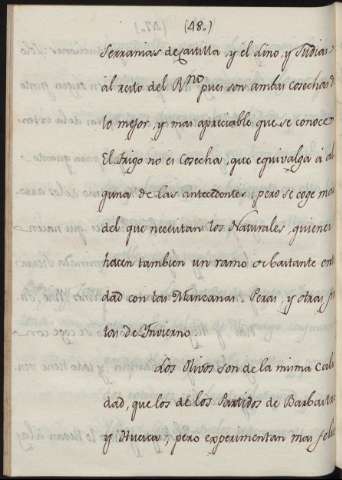 (48.)
Serranias de Castilla, y el Lino, y Judias
al resto del R.no pues son ambas cosechas d
lo mejor, y mas apreciable que se conoce
El trigo no es cosecha, que equivalga à al
guna de las antecedentes; pero se coge mas
del que necesitan los Naturales, quienes
hacen tambien un ramo de bastante enti
dad con las Manzanas, Peras, y otras fru
tas de Invierno.
Los Olivos son de la misma Cali
dad, que los de los Partidos de Barbastro
y Huesca; pero experimentan mas